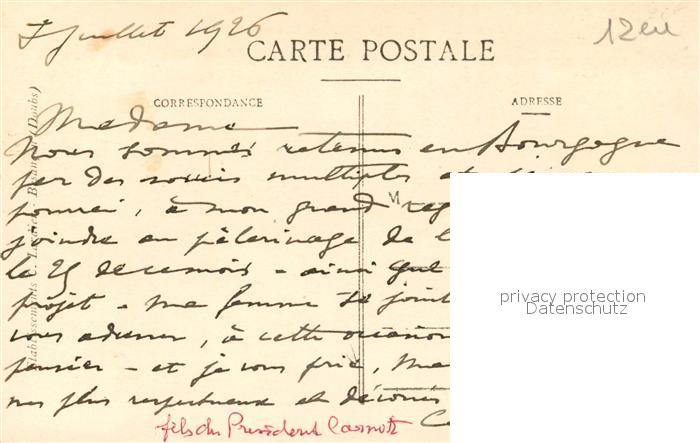 7 juillet 1926
12eu
CARTE POSTALE
CORRESPONDANCE
ADRESSE
Madame
Nous sommes retenus en Bourgogne
par des soucis multiples et
pourrai, à mon grand reg
joindre au pèlerinage de l
le 25 de ce mois - ainsi que
projet - Ma femme se joint
vous adresser, à cette occasion
pensier - et je vous prie, Ma
mes plus respectueux et dévoués
fils du Président Carnot
Etablissements C. Lardier - Besançon (Doubs)
privacy protection
Datenschutz